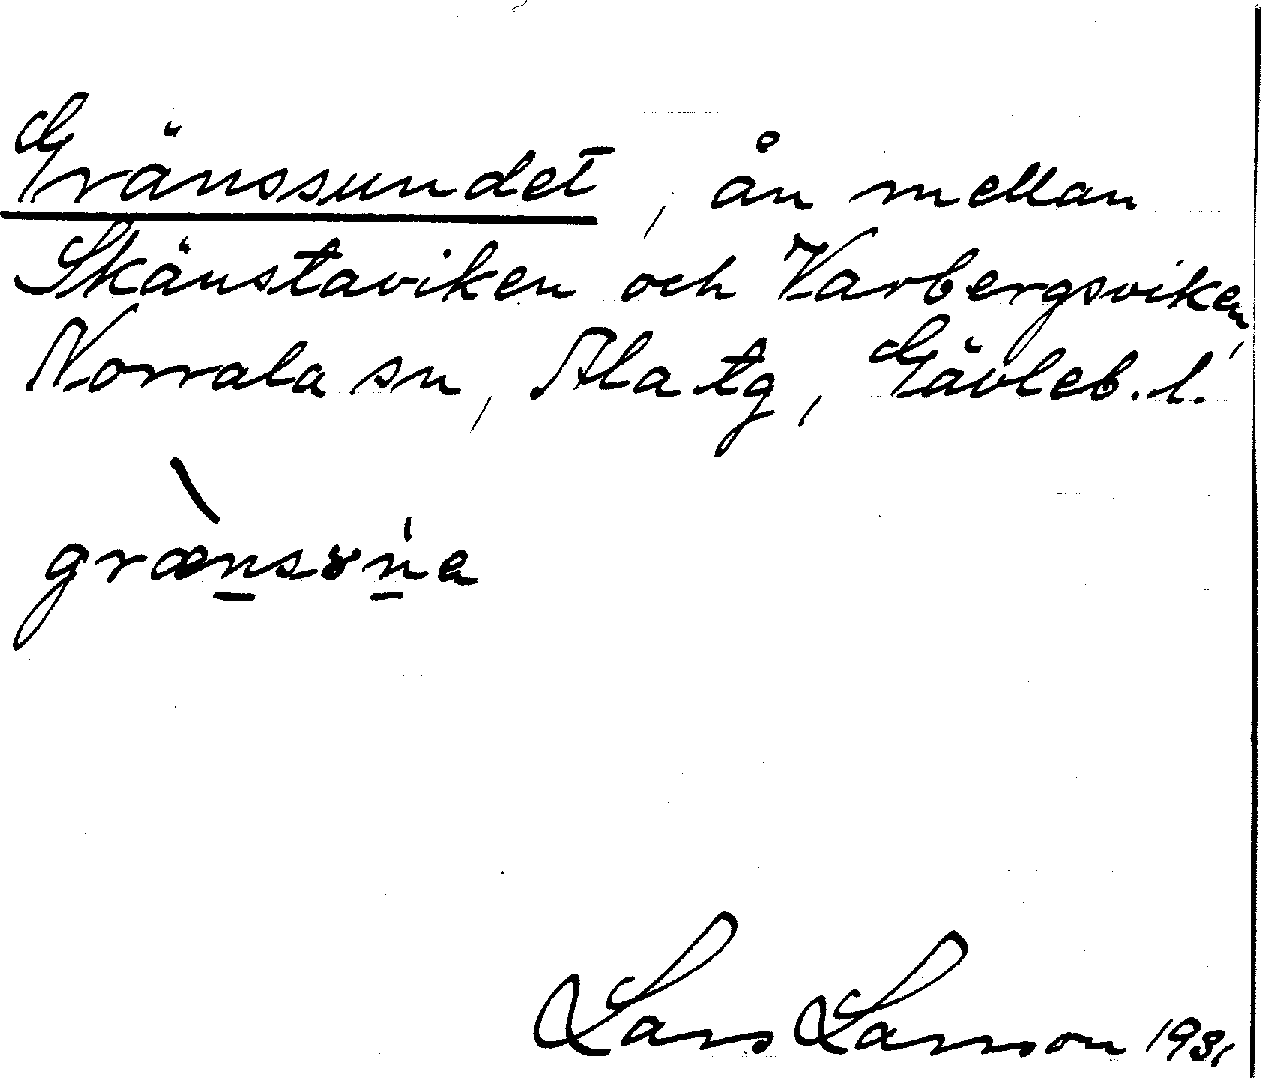 Gränssundet, ån mellan
Skänstaviken och Varbergsviken,
Norrala sn, Ala tg, Gävleb. l.
græ̀nsɤn̍a
Lars Larsson 1931